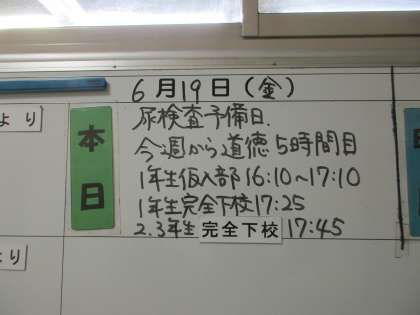 6月19日(金)
より
本日
尿検査予備日.
今週から道徳5時間目
1年生仮入部16:10~17:10
1年生完全下校17:25
2.3年生完全下校17:45
より